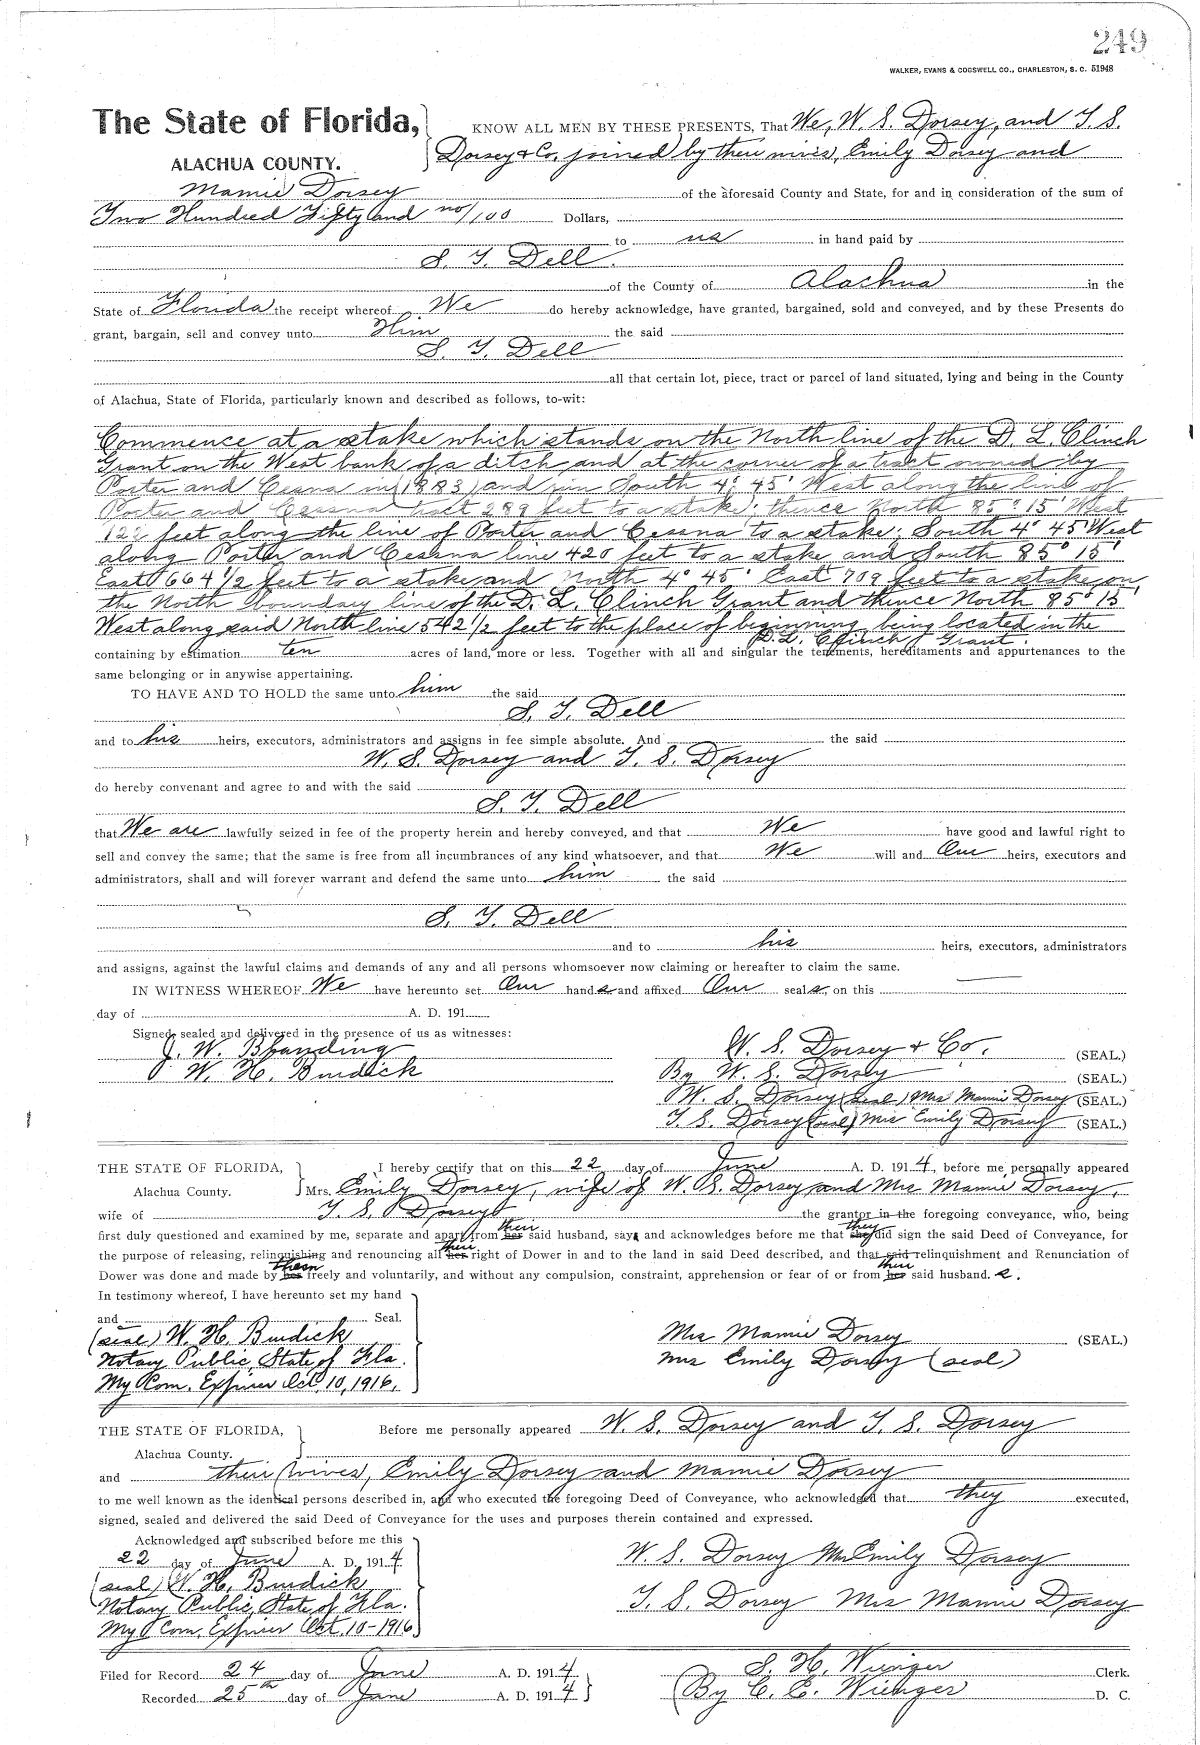 249
WALKER, EVANS & COGSWELL CO., CHARLESTON, S. C. 51948
The State of Florida, KNOW ALL MEN BY THESE PRESENTS, That We, W. S. Dorsey, and T. S.
ALACHUA COUNTY. Dorsey & Co. joined by their wives, Emily Dorsey and
Mamie Dorsey of the aforesaid County and State, for and in consideration of the sum of
Two Hundred Fifty and no/100 Dollars,
to us in hand paid by
S. T. Dell.
of the County of Alachua in the
State of Florida the receipt whereof We do hereby acknowledge, have granted, bargained, sold and conveyed, and by these Presents do
grant, bargain, sell and convey unto Him the said
S. T. Dell
all that certain lot, piece, tract or parcel of land situated, lying and being in the County
of Alachua, State of Florida, particularly known and described as follows, to-wit:
Commence at a stake which stands on the North line of the D. L. Clinch
Grant on the West bank of a ditch and at the corner of a tract owned by
Porter and Cessna in (1883) and run South 4° 45' West along the line of
Porter and Cessna tract 289 feet to a stake; thence North 85° 15' West
122 feet along the line of Porter and Cessna to a stake; South 4° 45' West
along Porter and Cessna line 420 feet to a stake and South 85° 15'
East 664 1/2 feet to a stake and North 4° 45' East 709 feet to a stake on
the North boundary line of the D. L. Clinch Grant and thence North 85° 15'
West along said North line 542 1/2 feet to the place of beginning being located in the
D. L. Clinch Grant.
containing by estimation ten acres of land, more or less. Together with all and singular the tenements, hereditaments and appurtenances to the
same belonging or in anywise appertaining.
TO HAVE AND TO HOLD the same unto him the said
S. T. Dell
and to his heirs, executors, administrators and assigns in fee simple absolute. And the said
W. S. Dorsey and T. S. Dorsey
do hereby convenant and agree to and with the said
S. T. Dell
that We are lawfully seized in fee of the property herein and hereby conveyed, and that We have good and lawful right to
sell and convey the same; that the same is free from all incumbrances of any kind whatsoever, and that We will and Our heirs, executors and
administrators, shall and will forever warrant and defend the same unto him the said
S. T. Dell
and to his heirs, executors, administrators
and assigns, against the lawful claims and demands of any and all persons whomsoever now claiming or hereafter to claim the same.
IN WITNESS WHEREOF We have hereunto set Our hands and affixed Our seals, on this
day of A. D. 191
Signed, sealed and delivered in the presence of us as witnesses:
J. W. Blanding W. S. Dorsey & Co. (SEAL.)
W. H. Burdick By W. S. Dorsey (SEAL.)
W. S. Dorsey (seal) Mrs Mamie Dorsey (SEAL.)
T. S. Dorsey (seal) Mrs Emily Dorsey (SEAL.)
THE STATE OF FLORIDA, I hereby certify that on this 22 day of June A. D. 1914, before me personally appeared
Alachua County. Mrs. Emily Dorsey, wife of W. S. Dorsey and Mrs Mamie Dorsey,
wife of T. S. Dorsey the grantor in the foregoing conveyance, who, being
first duly questioned and examined by me, separate and apart from their said husband, say, and acknowledges before me that they did sign the said Deed of Conveyance, for
the purpose of releasing, relinquishing and renouncing all their right of Dower in and to the land in said Deed described, and that said relinquishment and Renunciation of
Dower was done and made by them freely and voluntarily, and without any compulsion, constraint, apprehension or fear of or from their said husband. s.
In testimony whereof, I have hereunto set my hand
and Seal.
(seal) W. H. Burdick Mrs Mamie Dorsey (SEAL.)
Notary Public, State of Fla. Mrs Emily Dorsey (seal)
My Com. Expires Oct. 10, 1916.
THE STATE OF FLORIDA, Before me personally appeared W. S. Dorsey and T. S. Dorsey
Alachua County.
and their wives, Emily Dorsey and Mamie Dorsey
to me well known as the identical persons described in, and who executed the foregoing Deed of Conveyance, who acknowledged that they executed,
signed, sealed and delivered the said Deed of Conveyance for the uses and purposes therein contained and expressed.
Acknowledged and subscribed before me this
22 day of June A. D. 1914 W. S. Dorsey Mrs Emily Dorsey
(seal) W. H. Burdick
Notary Public, State of Fla. T. S. Dorsey Mrs Mamie Dorsey
My Com. Expires Oct. 10-1916
Filed for Record 24 day of June A. D. 1914 S. H. Wienger Clerk.
Recorded 25th day of June A. D. 1914 By C. E. Wienger D. C.